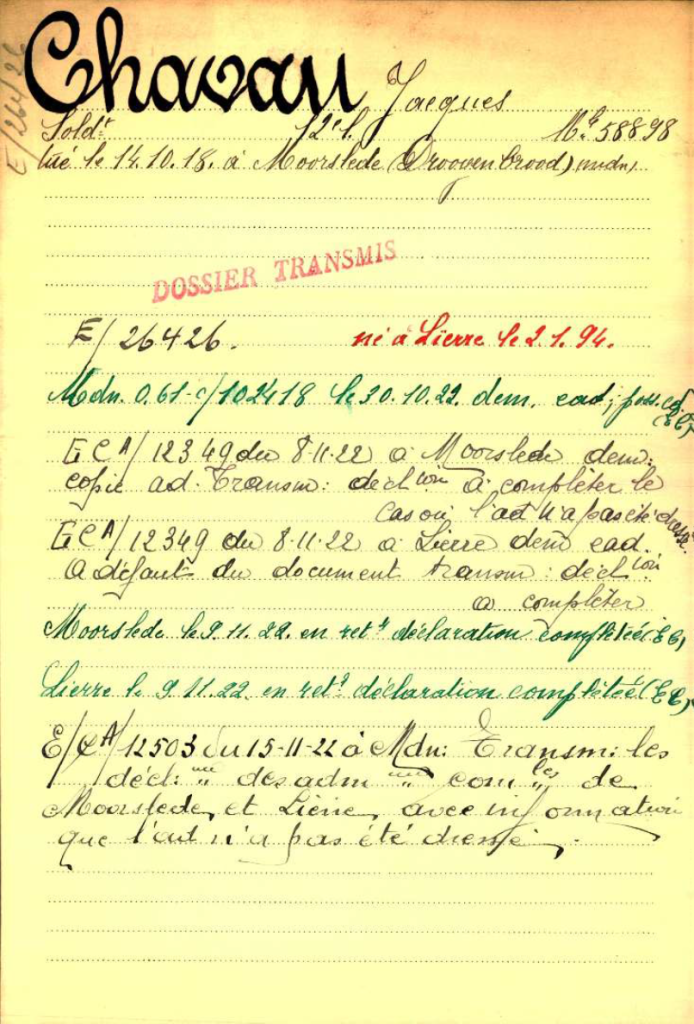 E/26426
Chavau Jacques
Soldt 12e l. Mle 58898
tué le 14.10.18. à Moorslede (Droogenbrood) (mdn)
DOSSIER TRANSMIS
E/26426. né à Lierre le 2.1.94.
Mdn. 0.61-c/102418 le 30.10.22. dem. ead;
E C A/12349 du 8-11-22 à Moorslede dem:
copie ad. Transm: déclion à compléter le
cas où l'act n'a pas été dressé.
E C A/12349 du 8-11-22 à Lierre dem ead.
a défaut du document transm: déclion
à compléter
Moorslede le 9.11.22. en ret. déclaration complétée (EC)
Lierre le 9.11.22. en ret. déclaration complétée (EC)
E/CA/12503 du 15-11-22 à Mdn: Transm: les
décl: des adm comles de
Moorslede et Lierre, avec information
que l'act n'a pas été dressé.